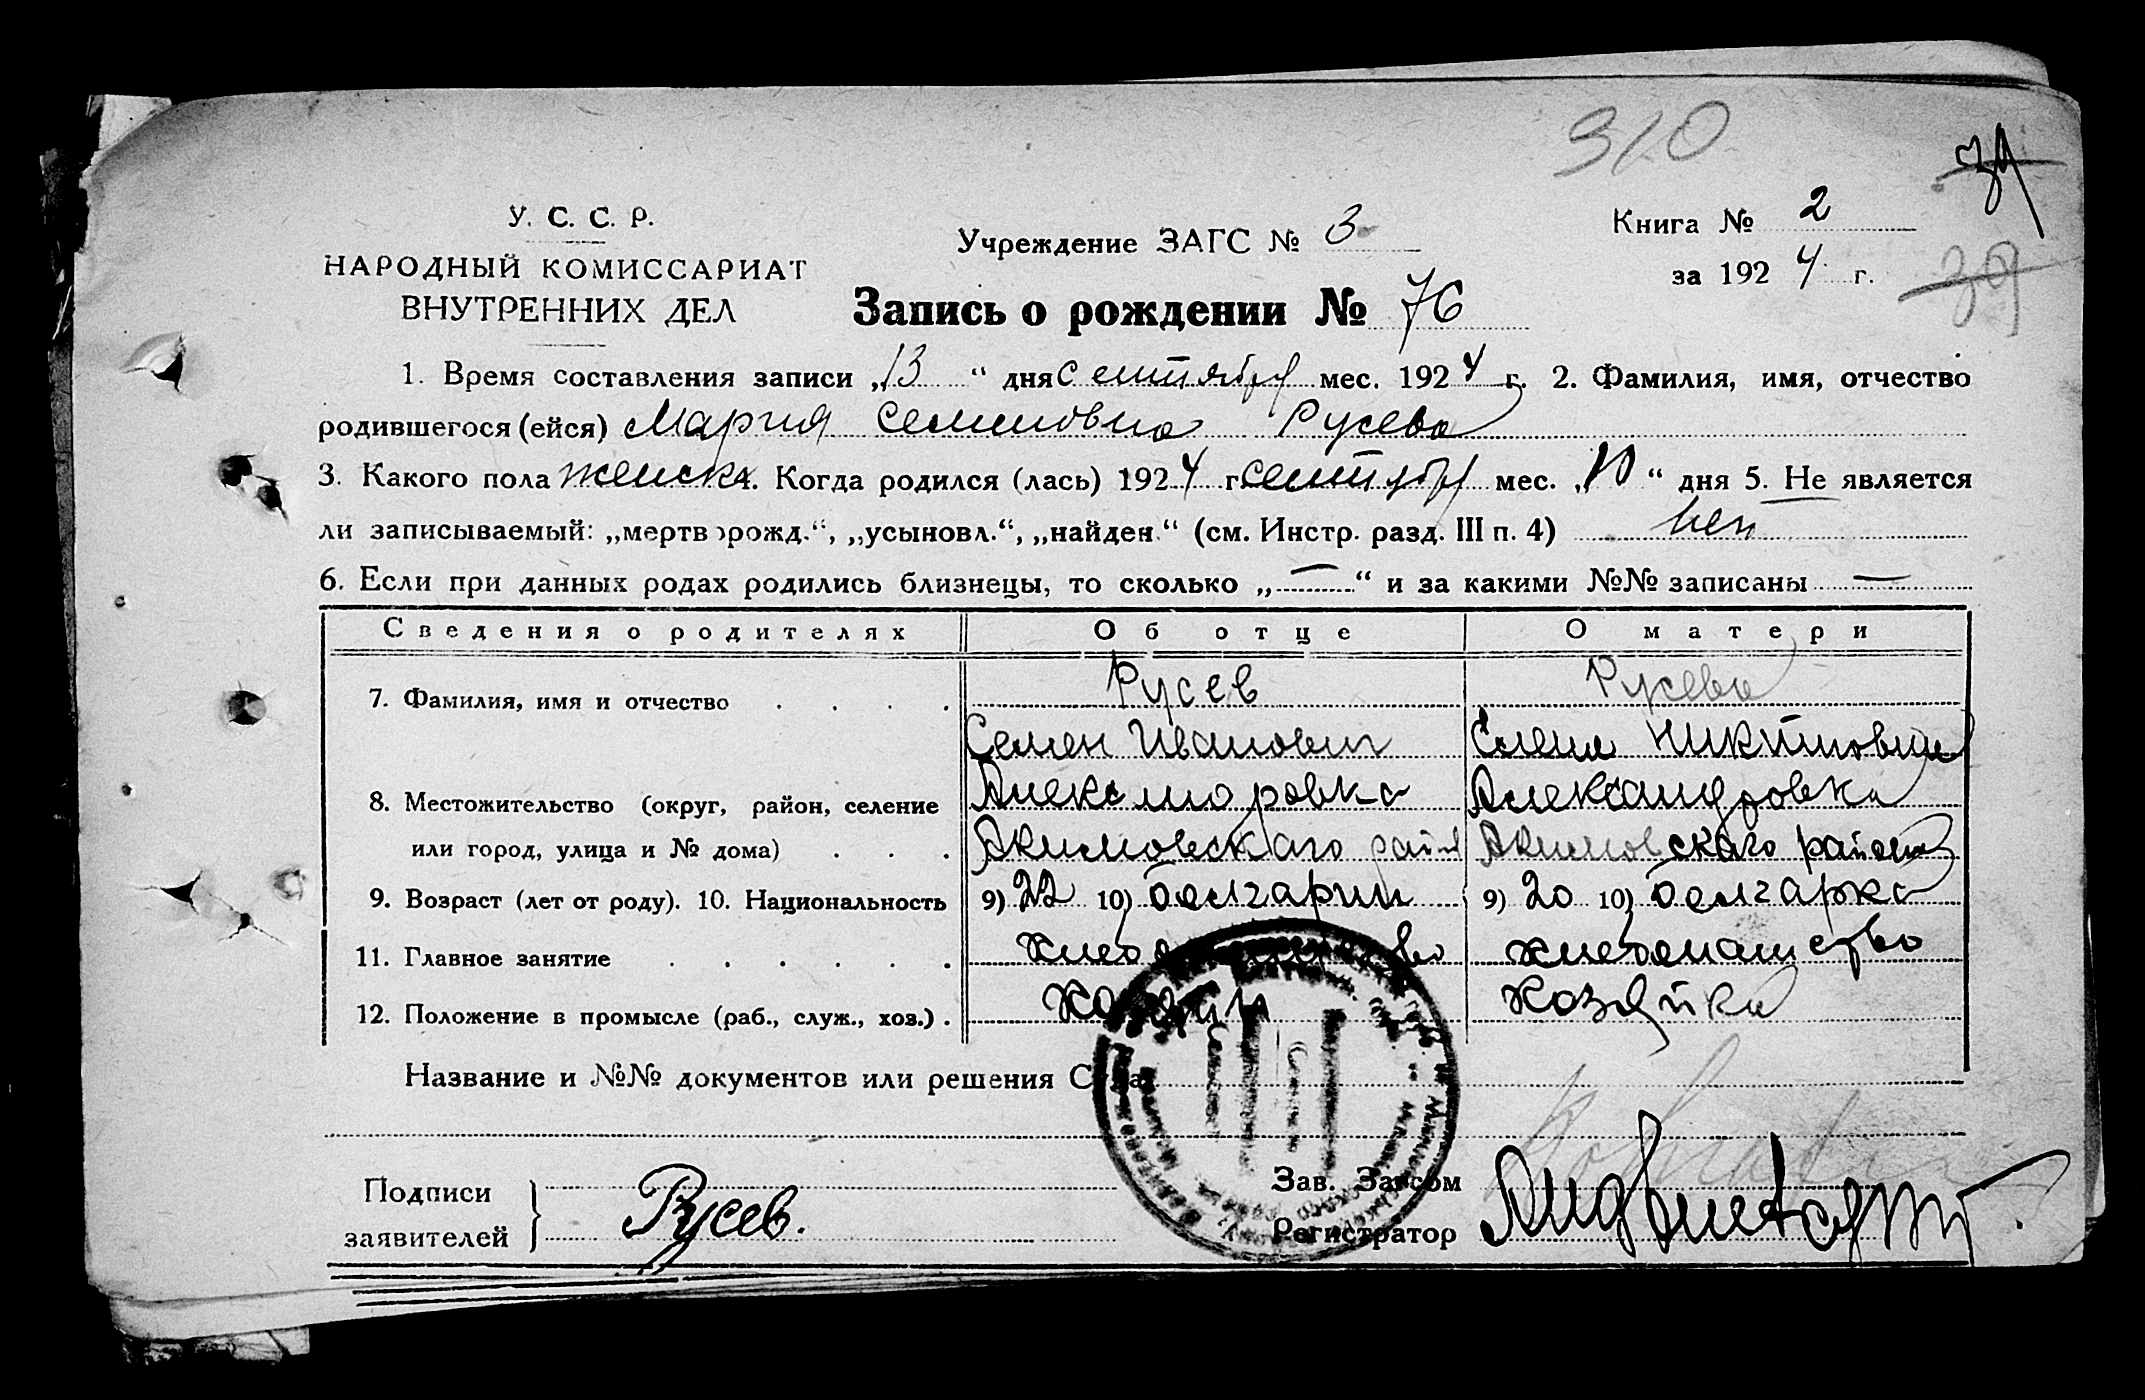 310
39
У. С. С. Р.
НАРОДНЫЙ КОМИССАРИАТ
ВНУТРЕННИХ ДЕЛ
Учреждение ЗАГС № 3
Книга № 2
за 1924 г.
39
Запись о рождении № 76
1. Время составления записи „13“ дня сентября мес. 1924 г. 2. Фамилия, имя, отчество
родившегося (ейся) Мария Семеновна Русева
3. Какого пола женск. 4. Когда родился (лась) 1924 г. сентября мес. „10“ дня 5. Не является
ли записываемый: „мертворожд.“, „усыновл.“, „найден.“ (см. Инстр. разд. III п. 4) нет
6. Если при данных родах родились близнецы, то сколько „—“ и за какими №№ записаны —
Сведения о родителях Об отце О матери
7. Фамилия, имя и отчество . . . . Русев Русева
Семен Иванович Елена Никитовна
8. Местожительство (округ, район, селение Александровка
или город, улица и № дома) . . . Акимовского район Акимовского района
9. Возраст (лет от роду). 10. Национальность 9) 22 10) болгарин 9) 20 10) болгарка
11. Главное занятие . . . . . . хлебопашество хлебопашество
12. Положение в промысле (раб., служ., хоз.) . хозяин хозяйка
Название и №№ документов или решения Суда
Подписи
заявителей Русев.
Зав. Загсом
Регистратор